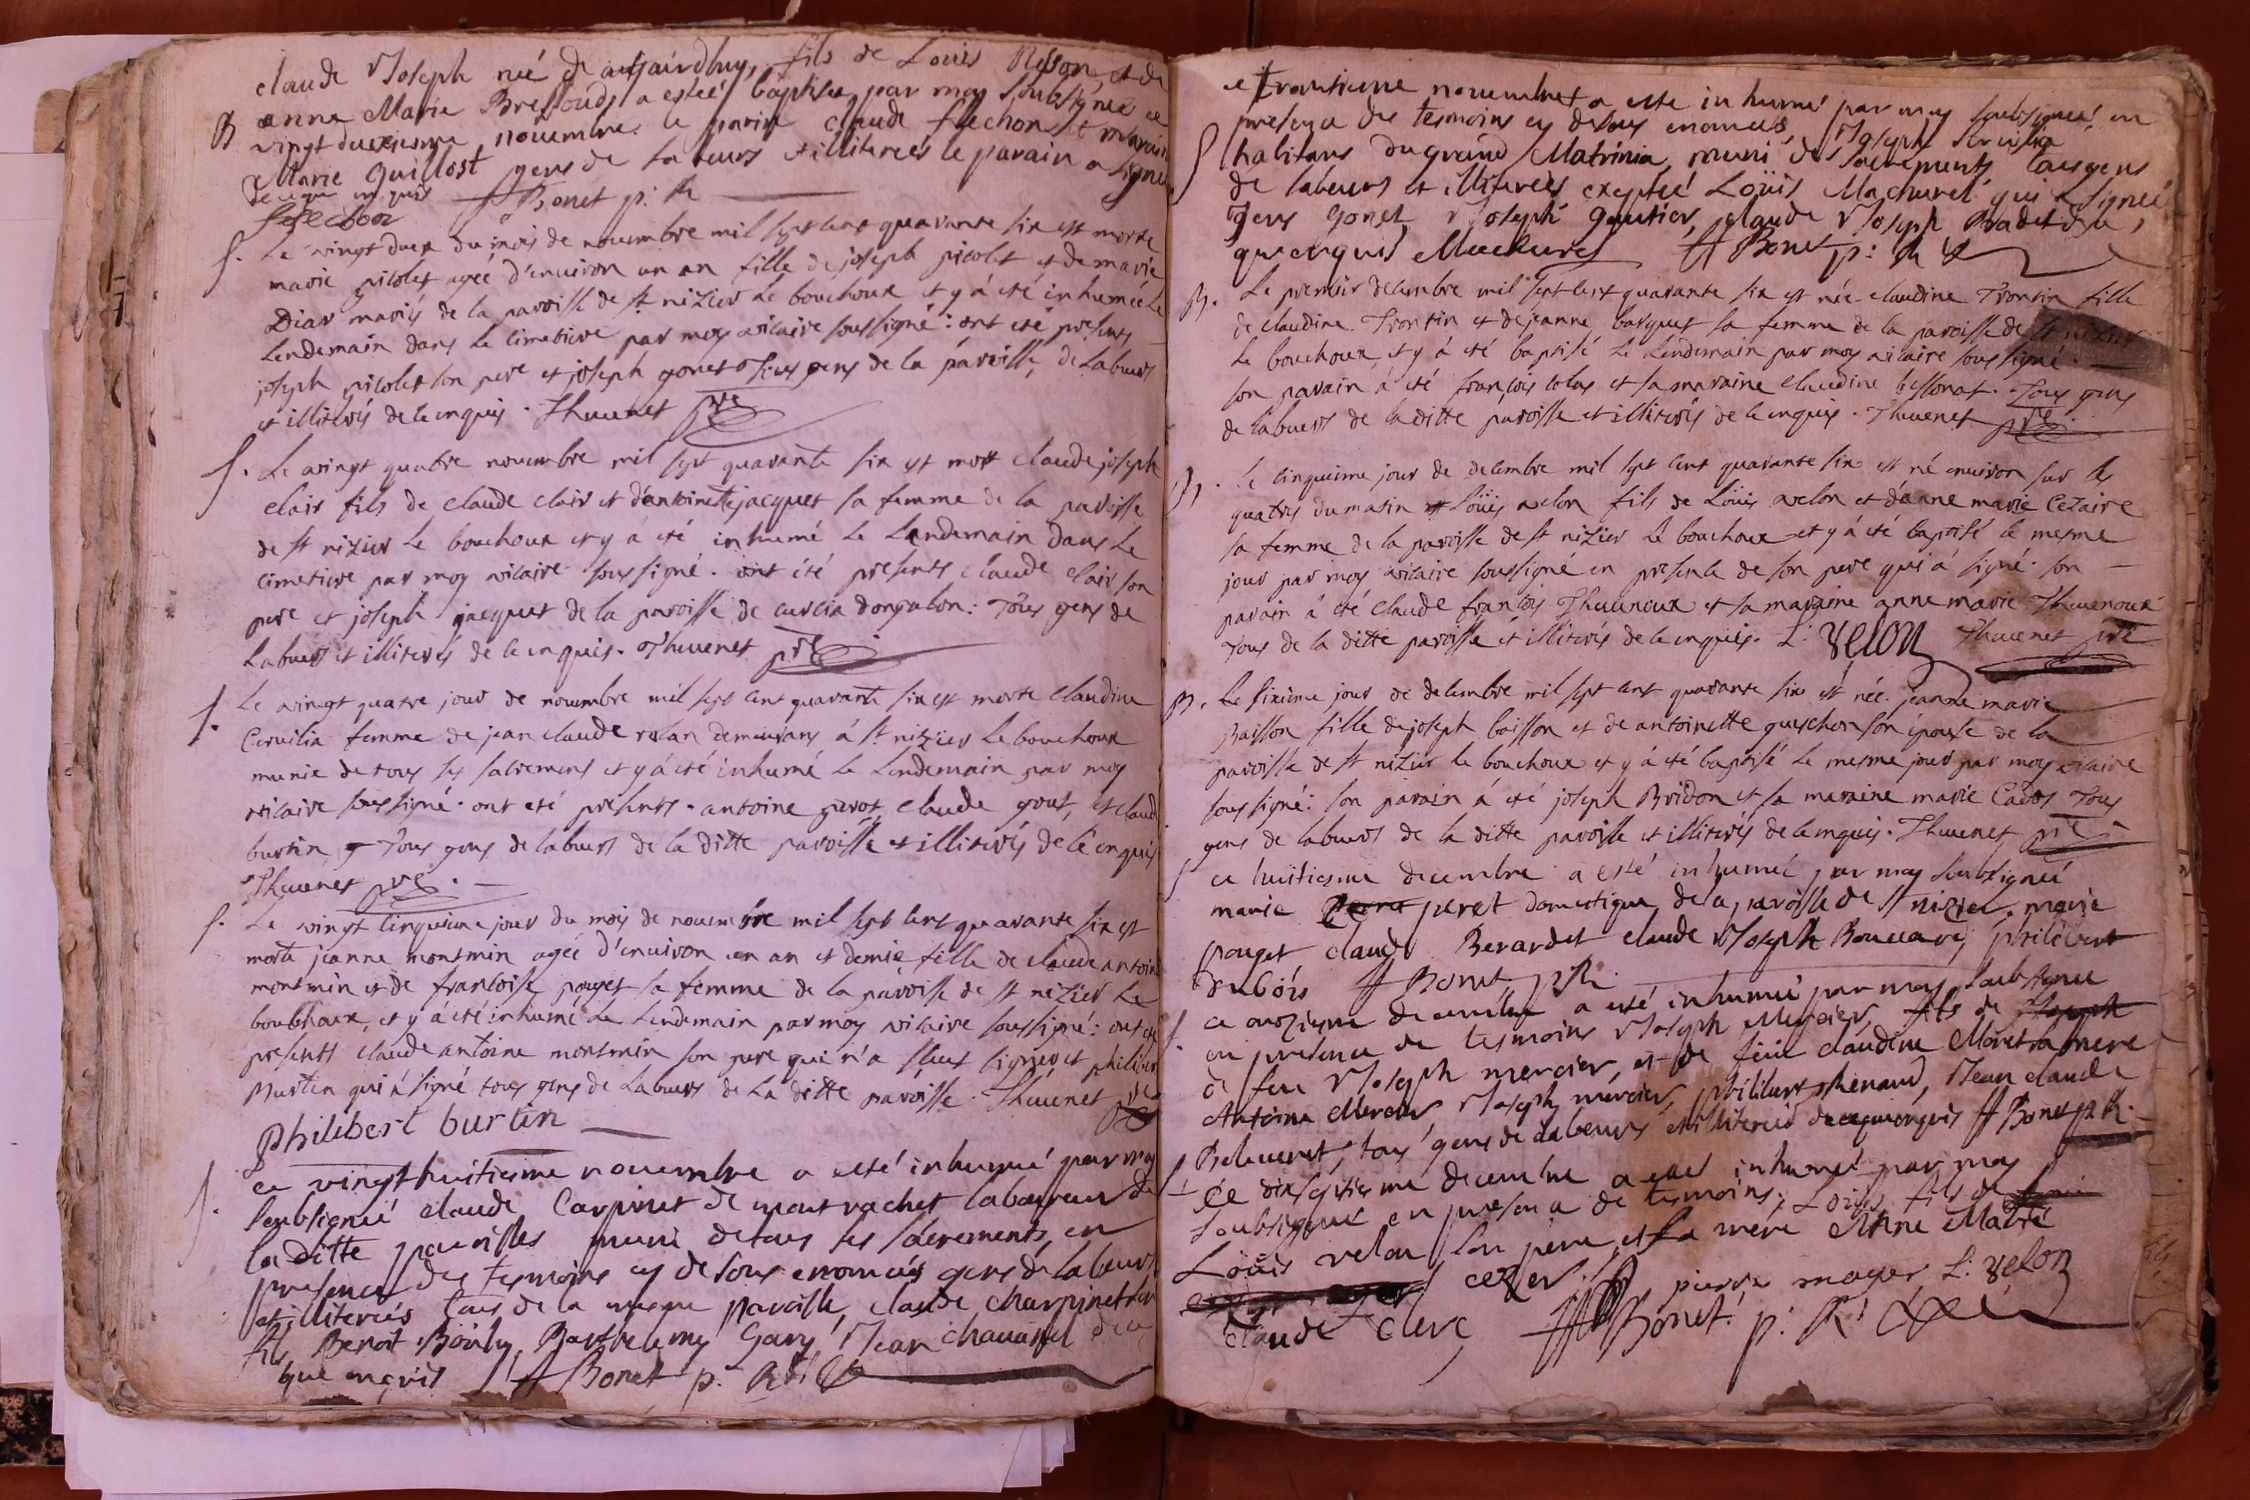 claude Joseph né d'aujourdhuy, fils de Louis et de
B anne Marie a esteé baptisee par moy soubsigné ce
vingt duexiesme nouembre le parain claude flechon et maraine
Marie Guillost gens de labeurs et illitereés le parain a signé
de ce que enquis A Bonet p: R
flechon
S. Le vingt deux du mois de nouembre mil sept cent quarante six est morte
marie picolet ageé d'enuiron un an fille de joseph picolet et de marie
Diar mariés de la paroisse de st nizier Le bouchoux et y à été inhumée Le
Lendemain dans Le cimetiere par moy vicaire soussigné: ont été presents
joseph picolet son pere et joseph gonet tous gens de la paroisse, de Labeurs
et illiterés de ce enquis. Thuenet pre
S. Le vingt quatre nouembre mil sept quarante six est mort claude joseph
clair fils de claude clair et d'antoinette jacquet sa femme de la paroisse
de st nizier Le bouchoux et y à été inhumé Le Lendemain dans Le
cimetiere par moy vicaire soussigné. ont été presents claude clair son
pere et joseph jacquet de la paroisse de curcia dongalon: Tous gens de
Labeurs et illiterés de ce enquis. Thuenet pre
S. Le vingt quatre jour de nouembre mil sept cent quarante six est morte claudine
Ceruilia femme de jean claude rolan demeurans à st nizier Le bouchoux
munie de tous ses sacremens et y à été inhumé Le Lendemain par moy
vicaire soussigné. ont été presents. antoine parot, claude gout, et claude
burtin Tous gens de labeurs de la ditte paroisse et illiterés de ce enquis
Thuenet pre.
S. Le vingt cinquieme jour du mois de nouembre mil sept cent quarante six est
morte jeanne montmin ageé d'enuiron un an et demie fille de claude antoine
montmin et de francoise poupet sa femme de la paroisse de st nizier Le
bouchoux, et y à été inhumé Le Lendemain par moy vicaire soussigné: ont été
presents claude antoine montmin son pere qui n'a sceut signer et philibert
Burtin qui à signé tous gens de Labeurs de La ditte paroisse. Thuenet pre
philibert burtin
S. Ce vingt huitiesme nouembre a esté inhumé par moy
soubsigneé claude Carpinet de montrachet laboureur de
la ditte paroisse muni de tous les sacrements en
presence des tesmoins cy desous enomés gens de labeurs
et illitereés tous de la mesme paroisse, claude charpinet son
fils Benoit Bouly, Barthelemy Gary Jean chauanel de ce
que enquis A Bonet p: R
S ce trantiesme nouembre a esté inhumé par moy soubsigneé en
presence des tesmoins cy desous enomés, Joseph Seruilia
habitans du grand Matrinia muni des sacrements tous gens
de labeurs et illitereés exepteé Loüis Machuret qui a signé
gens gonet Joseph Gautier, claude Joseph Bradet de ce
que enquis Machuret A Bonet p: R
B. Le premier decembre mil sept cent quarante six est née claudine Trontin fille
de claudine Trontin et de jeanne barquet sa femme de la paroisse de st nizier
Le bouchoux, et y à été baptisé Le Lendemain par moy vicaire soussigné.
son parain à été françois colas et sa maraine claudine bessonat. Tous gens
de labeurs de la ditte paroisse et illiterés de ce enquis. Thuenet pre.
B. Le cinquieme jour de decembre mil sept cent quarante six est né enuiron sur les
quatres du matin Loüis velon fils de Loüis velon et d'anne marie Cezaire
sa femme de la paroisse de st nizier Le bouchoux et y à été baptisé le mesme
jour par moy vicaire soussigné en presence de son pere qui à signé. son
parain à été claude françois Thuunoux et sa maraine anne marie Thuenoux
Tous de la ditte paroisse et illiterés de ce enquis. L. velon Thuenet pre
B. Le sixieme jour de decembre mil sept cent quarante six est née jeanne marie
Baisson fille de joseph baisson et de antoinette gueschon son épouse de la
paroisse de st nizier le bouchoux et y à été baptisé Le mesme jour par moy vicaire
soussigné: son parain à été joseph Bridon et sa maraine marie Cadot Tous
gens de labeurs de la ditte paroisse et illiterés de ce enquis. Thuenet pre.
S ce huitiesme decembre a esté inhumeé par moy soubsigneé
marie peret domestique de la paroisse de st nizier. marie
pouget claude Berardet claude Joseph Bouccard, philibert
dubois A Bonet p R
S. ce onziesme decembre a esté inhumeé par moy soubsigneé
en presence de tesmoins Joseph Mercier, fils de
de feu Joseph mercier, et de feüe claudine Moret sa mere
Antoine Mercier Joseph mercier, philibert phenaud, Jean claude
Beleuenet, tous gens de labeurs et illitereés de ce que enquis A Bonet p R.
S Ce dix septiesme decembre a esté inhumé par moy
soubsigneé en presence de tesmoins, Loüis fils de
Loüis velon son pere, et sa mere Anne Marie
cezer pierre moyer, L. velon
claude clerc A Bonet p: R